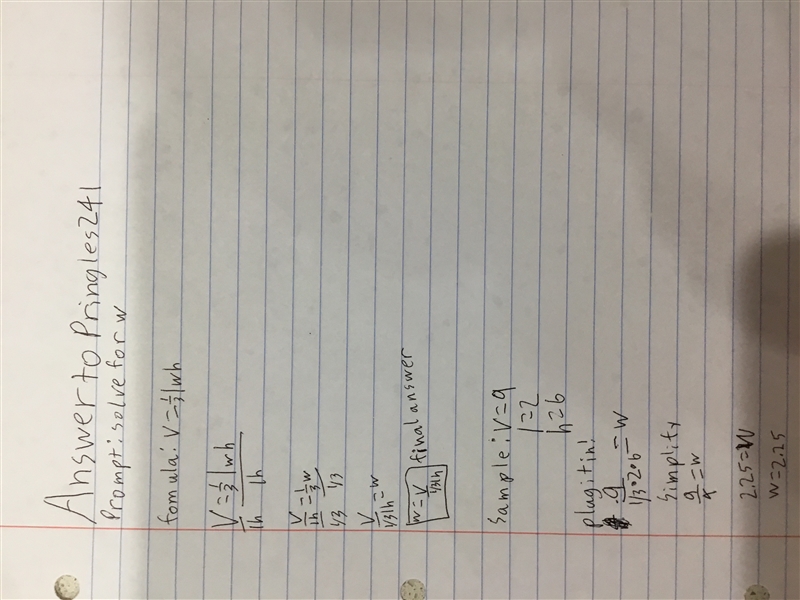 Answer to Pringles241
Prompt: solve for w
fomula: V = 1/3 lwh
V = 1/3 lwh
lh lh
V = 1/3 w
lh
1/3 1/3
V = w
1/3lh
w = V final answer
1/3lh
Sample: V=9
l=2
h=6
plug it in!
9 = w
1/3·2·6
Simplify
9 = w
4
2.25=W
w=2.25